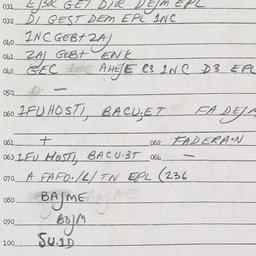 031 EJ3R GET DIR DEJM EPL
032 DI GEST DEM EPL 1NC
040 1NCGEBT2AJ
041 2AJ GEBT ENK
042 GEC AHE/E C3 1NC D3 EPL
050 —
060 1FUHOSTI, BACU,ET FADEJM
061 + 062 FADERA·N
063 1FU HOSTI, BACU·3T 064 —
070 A FAFO·/L/TN EPL (236
080 BAJME
090 BOJM
100 5U·1D